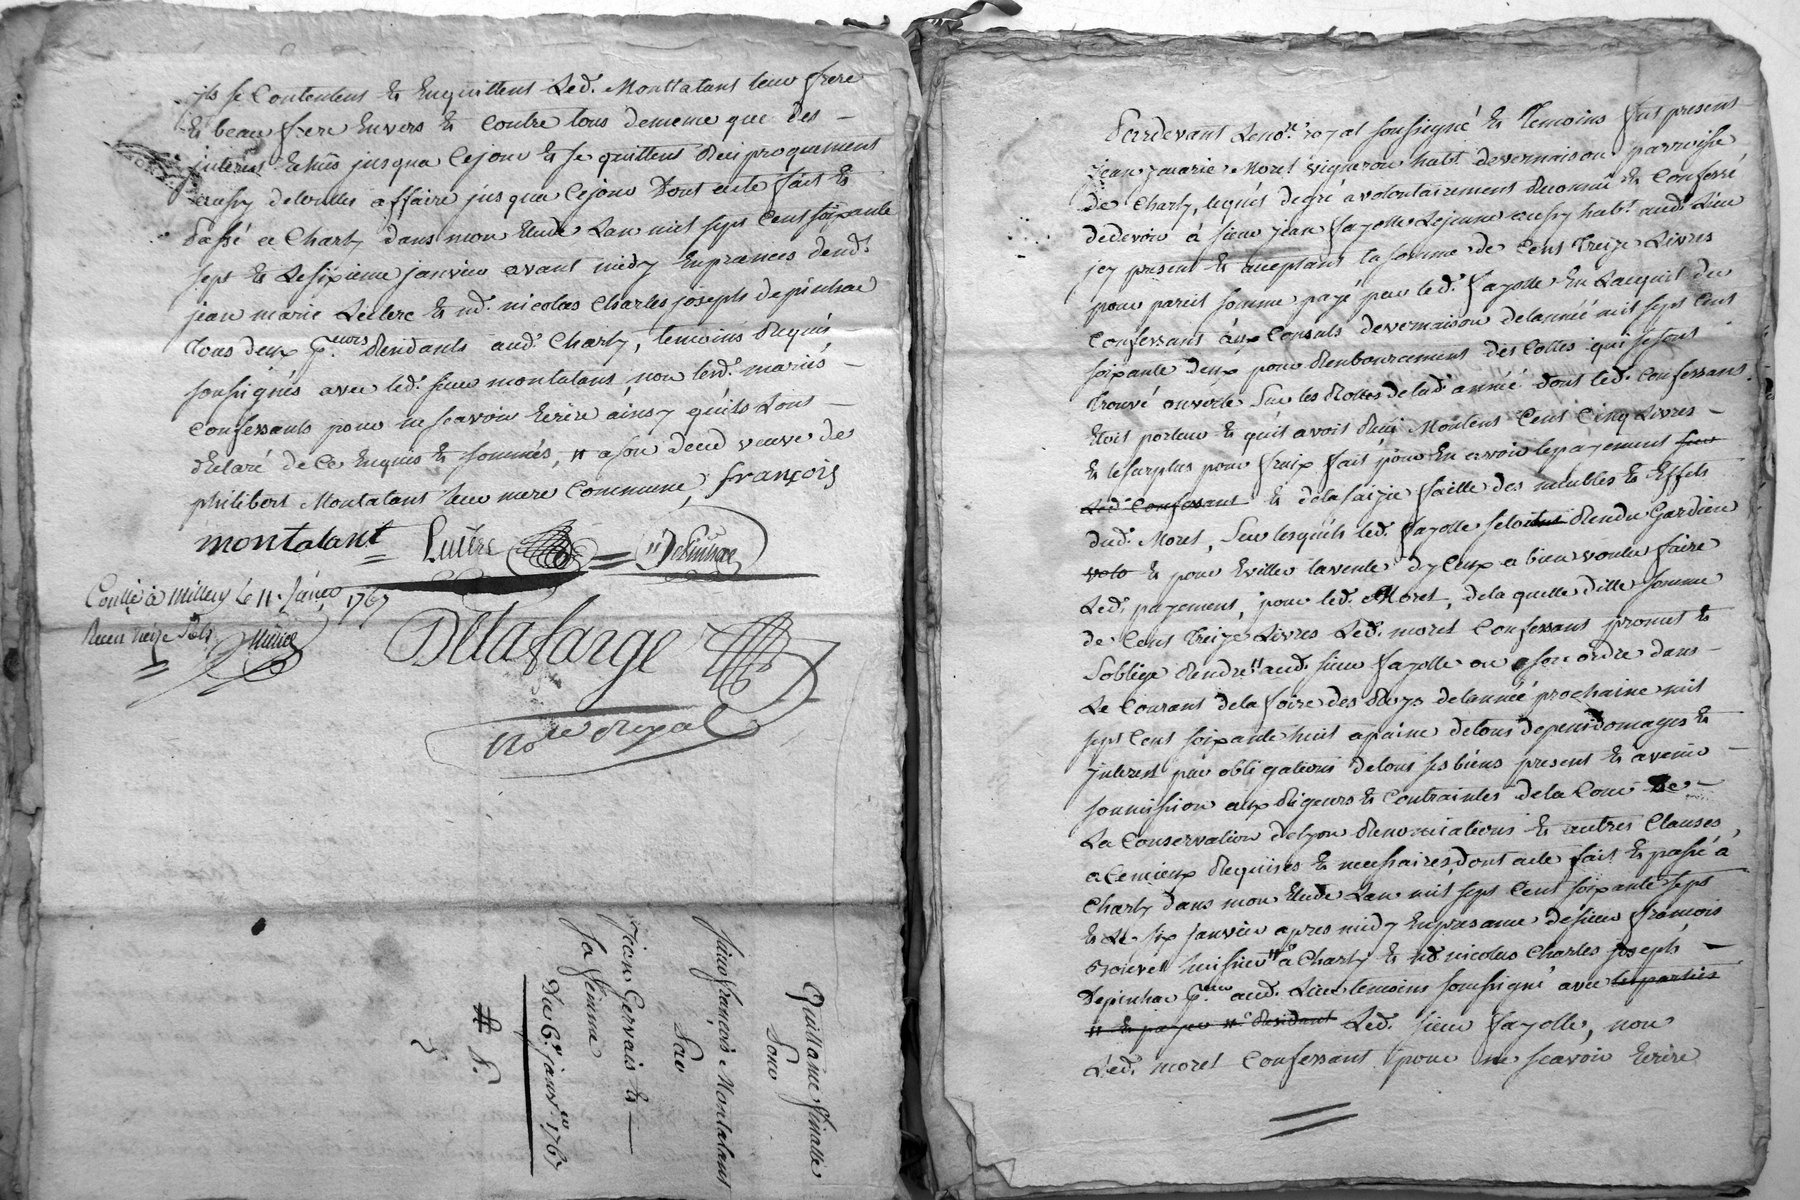 ils se Contentent et Enquittent Led. Montalant leur frere
et beau frere Envers et Contre tous dememe que des
interest Echus jusqua Cejour et se quittent Reciproquement
aussy detoutes affaire jusqua Cejour Dont acte fait et
Passé a Charly dans mon Etude Lan mil sept Cent soixante
sept et Lesixieme janvier avant midy Enpresences dend.
jean marie Leclerc et md. nicolas Charles joseph depinhac
tous deux Residants aud. Charly, temoins Requis
soussignés avec led. sieur montalant, non lesd. mariés
Confessants pour ne scavoir Ecrire ainsy quils Lont
declaré de Ce Enquis et sommés, veuve de
philibert Montalant leur mere Commune, françois
montalant Leclerc Depinhac
Conllé à Millery le 11. Janver 1767
Receu treize sols
Delafarge
No.re Royal
Quittance finalle
Pour
Sieur françois Montalant
Par
jean Gervais et
sa femme
Du 6.e janv.er 1767
Pardevant Leno.re royal soussigné et Temoins fut present
jean marie Moret vigneron habt. devernaison parroisse
de Charly, lequel degré a volontairement Reconnu et Confessé
dedevoir à sieur jean fayolle Lejeune aussy habt. aud. Lieu
icy present et acceptant la somme de Cent treize Livres
pour pareil somme payé par led. fayolle En Lacquit du
Confessant aux Consuls devernaison delannée mil sept Cent
soixante deux pour Rembourcement des Cottes qui se sont
trouvé ouverte Sur les Rolles delad. année dont led. Confessant
Etoit porteur et quil avoit Reçu Montent Cent Cinq Livres
et le surplus pour fraix fait pour En avoir le payement sur
Led. Confessant et de la saizie faitte des meubles et Effets
dud. Moret, Sur lesquels led. fayolle Rendu Gardien
volo et pour Eviter lavente dyceux a bien voulu faire
Led. payement, pour led. Moret, de la quelle ditte somme
de Cent treize Livres Led. moret Confessant promet et
Soblige Rendre aud. sieur fayolle ou a son ordre dans
Le Courant dela foire des Roys delannée prochaine mil
sept Cent soixante huit a paine detous depens domages et
interest par obligations detous ses biens present et avenir
soumission aux Rigeurs et Contraintes dela Cour de
La Conservation delyon Renonciations et autres Clauses
a Cemieux Requises et necessaires, dont acte fait et passé à
Charly dans mon Etude Lan mil sept Cent soixante sept
et Le six janvier apres midy Enpresance de sieur françois
huissier a Charly et md. nicolas Charles joseph
Depinhac aud. Lieu temoins soussigné avec les parties
Led. sieur fayolle, non
Led. moret Confessant pour ne scavoir Ecrire